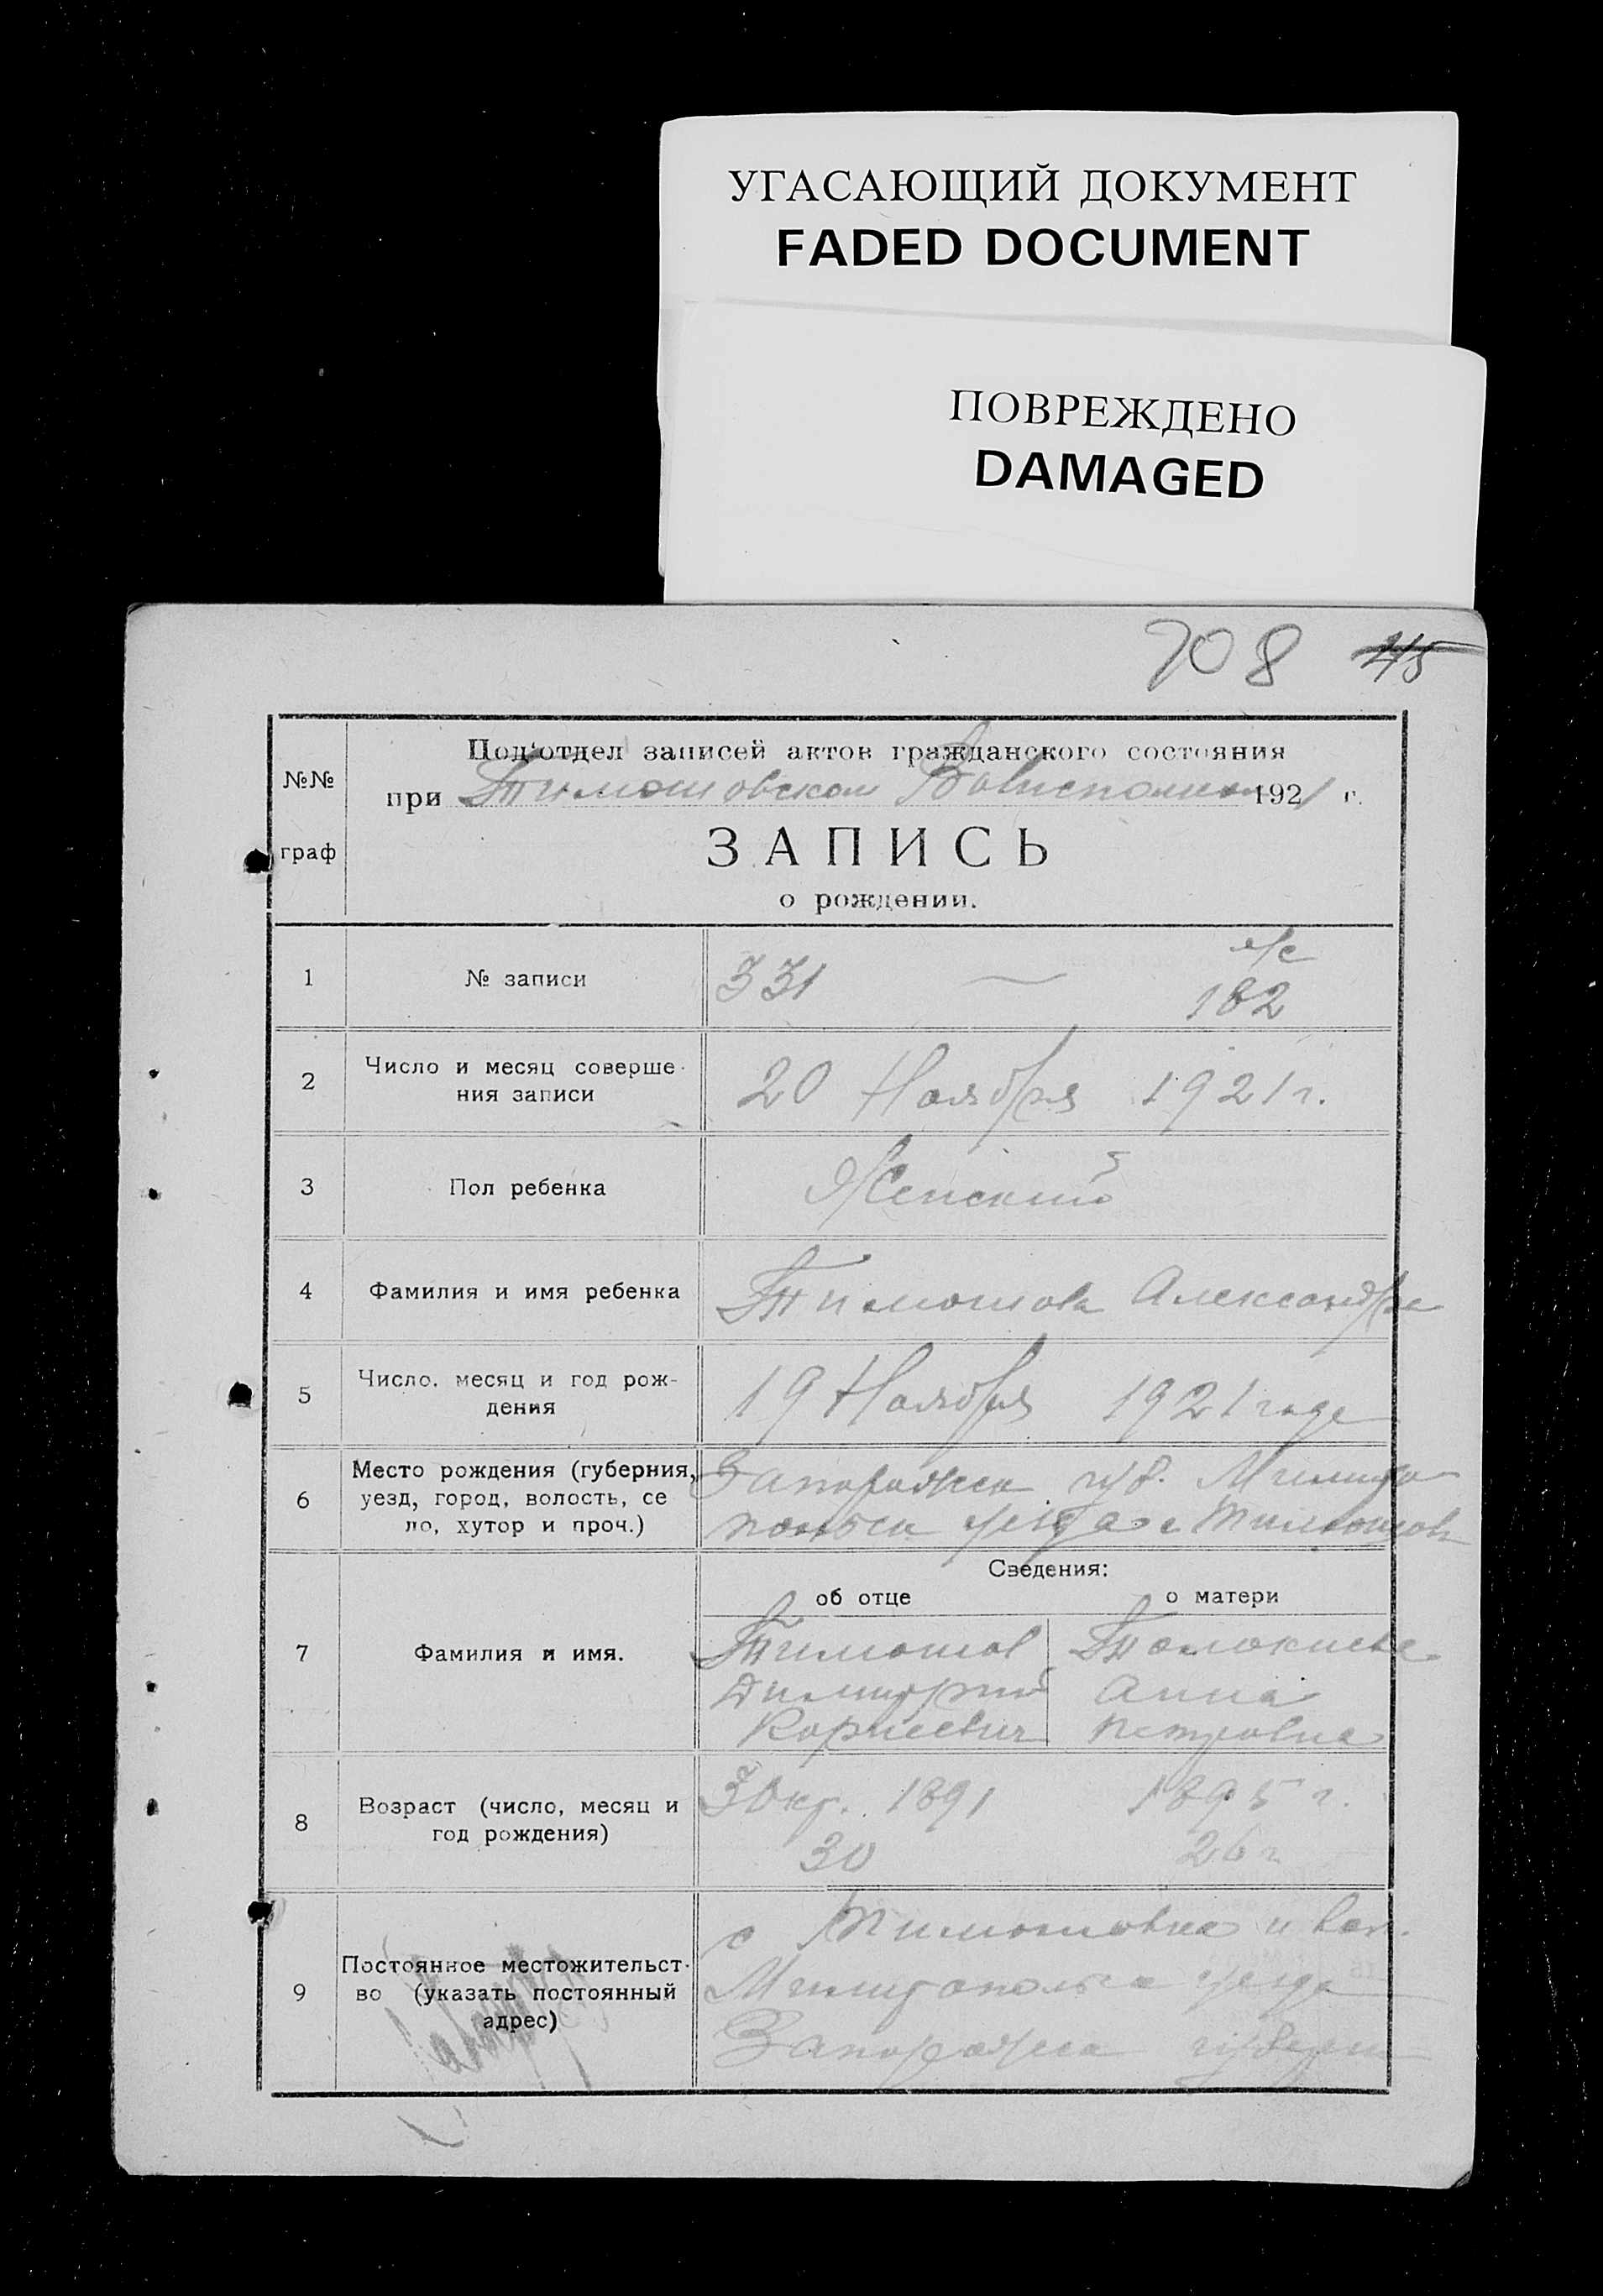 УГАСАЮЩИЙ ДОКУМЕНТ
FADED DOCUMENT
ПОВРЕЖДЕНО
DAMAGED
708 245
№№
граф
Под‘отдел записей актов гражданского состояния
при Тимошовском Волисполком 1921 г.
ЗАПИСЬ
о рождении.
1 № записи 331 — ж/с
182
2 Число и месяц соверше-
ния записи
20 Ноября 1921 г.
3 Пол ребенка Женский
4 Фамилия и имя ребенка Тимошова Александра
5 Число. месяц и год рож-
дения
19 Ноября 1921 года
6 Место рождения (губерния,
уезд, город, волость, се
ло, хутор и проч.)
Запорожск губ. Мелито
польск уезда с Тимошов
Сведения:
об отце о матери
7 Фамилия и имя.
Тимошов
Димитрий
Корнеевич
Анна
Петровна
8 Возраст (число, месяц и
год рождения)
3 Окт. 1891 1895 г.
30 26 г
9 Постоянное местожительст-
во (указать постоянный
адрес)
с Тимошовка и вол.
Мелитопольск уезда
Запорожск губерни